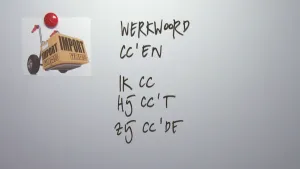 IMPORT
IMPORT
WERKWOORD
CC'EN
IK CC
HIJ CC'T
ZIJ CC'DE